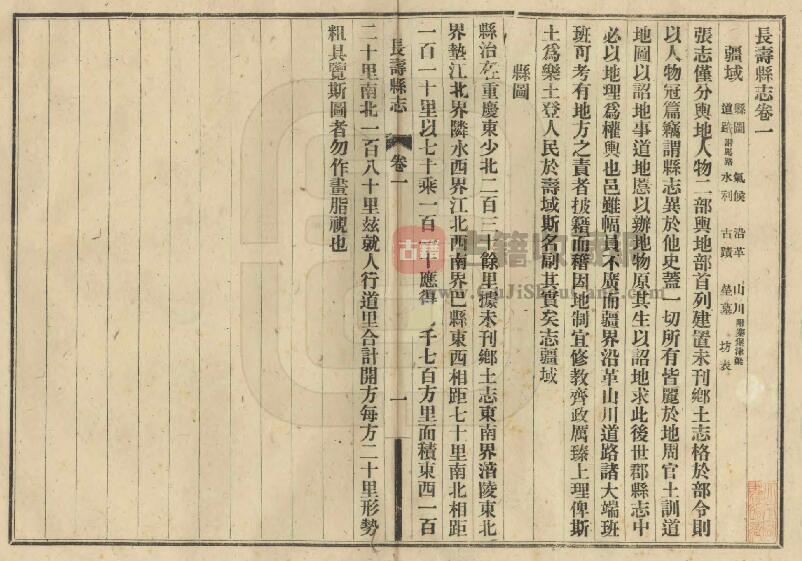 長壽縣志卷一
疆域 縣圖 氣候 沿革 山川附寨堡津梁
道路附馬路 水利 古蹟 塋墓 坊表
張志僅分輿地人物二部輿地部首列建置未刊鄉土志格於部令則
以人物冠篇竊謂縣志異於他史蓋一切所有皆麗於地周官土訓道
地圖以詔地事道地慝以辦地物原其生以詔地求此後世郡縣志中
必以地理爲權輿也邑雖幅員不廣而疆界沿革山川道路諸大端班
班可考有地方之責者披籍而稽因地制宜修教齊政厲臻上理俾斯
土爲樂土登人民於壽域斯名副其實矣志疆域
縣圖
縣治在重慶東少北二百三十餘里據未刊鄉土志東南界涪陵東北
界墊江北界隣水西界江北西南界巴縣東西相距七十里南北相距
一百一十里以七十乘一百一十應得七千七百方里面積東西一百
長壽縣志 卷一 一
二十里南北一百八十里茲就人行道里合計開方每方二十里形勢
粗具覽斯圖者勿作畫脂視也
古籍
www.GuJiShuCang.com